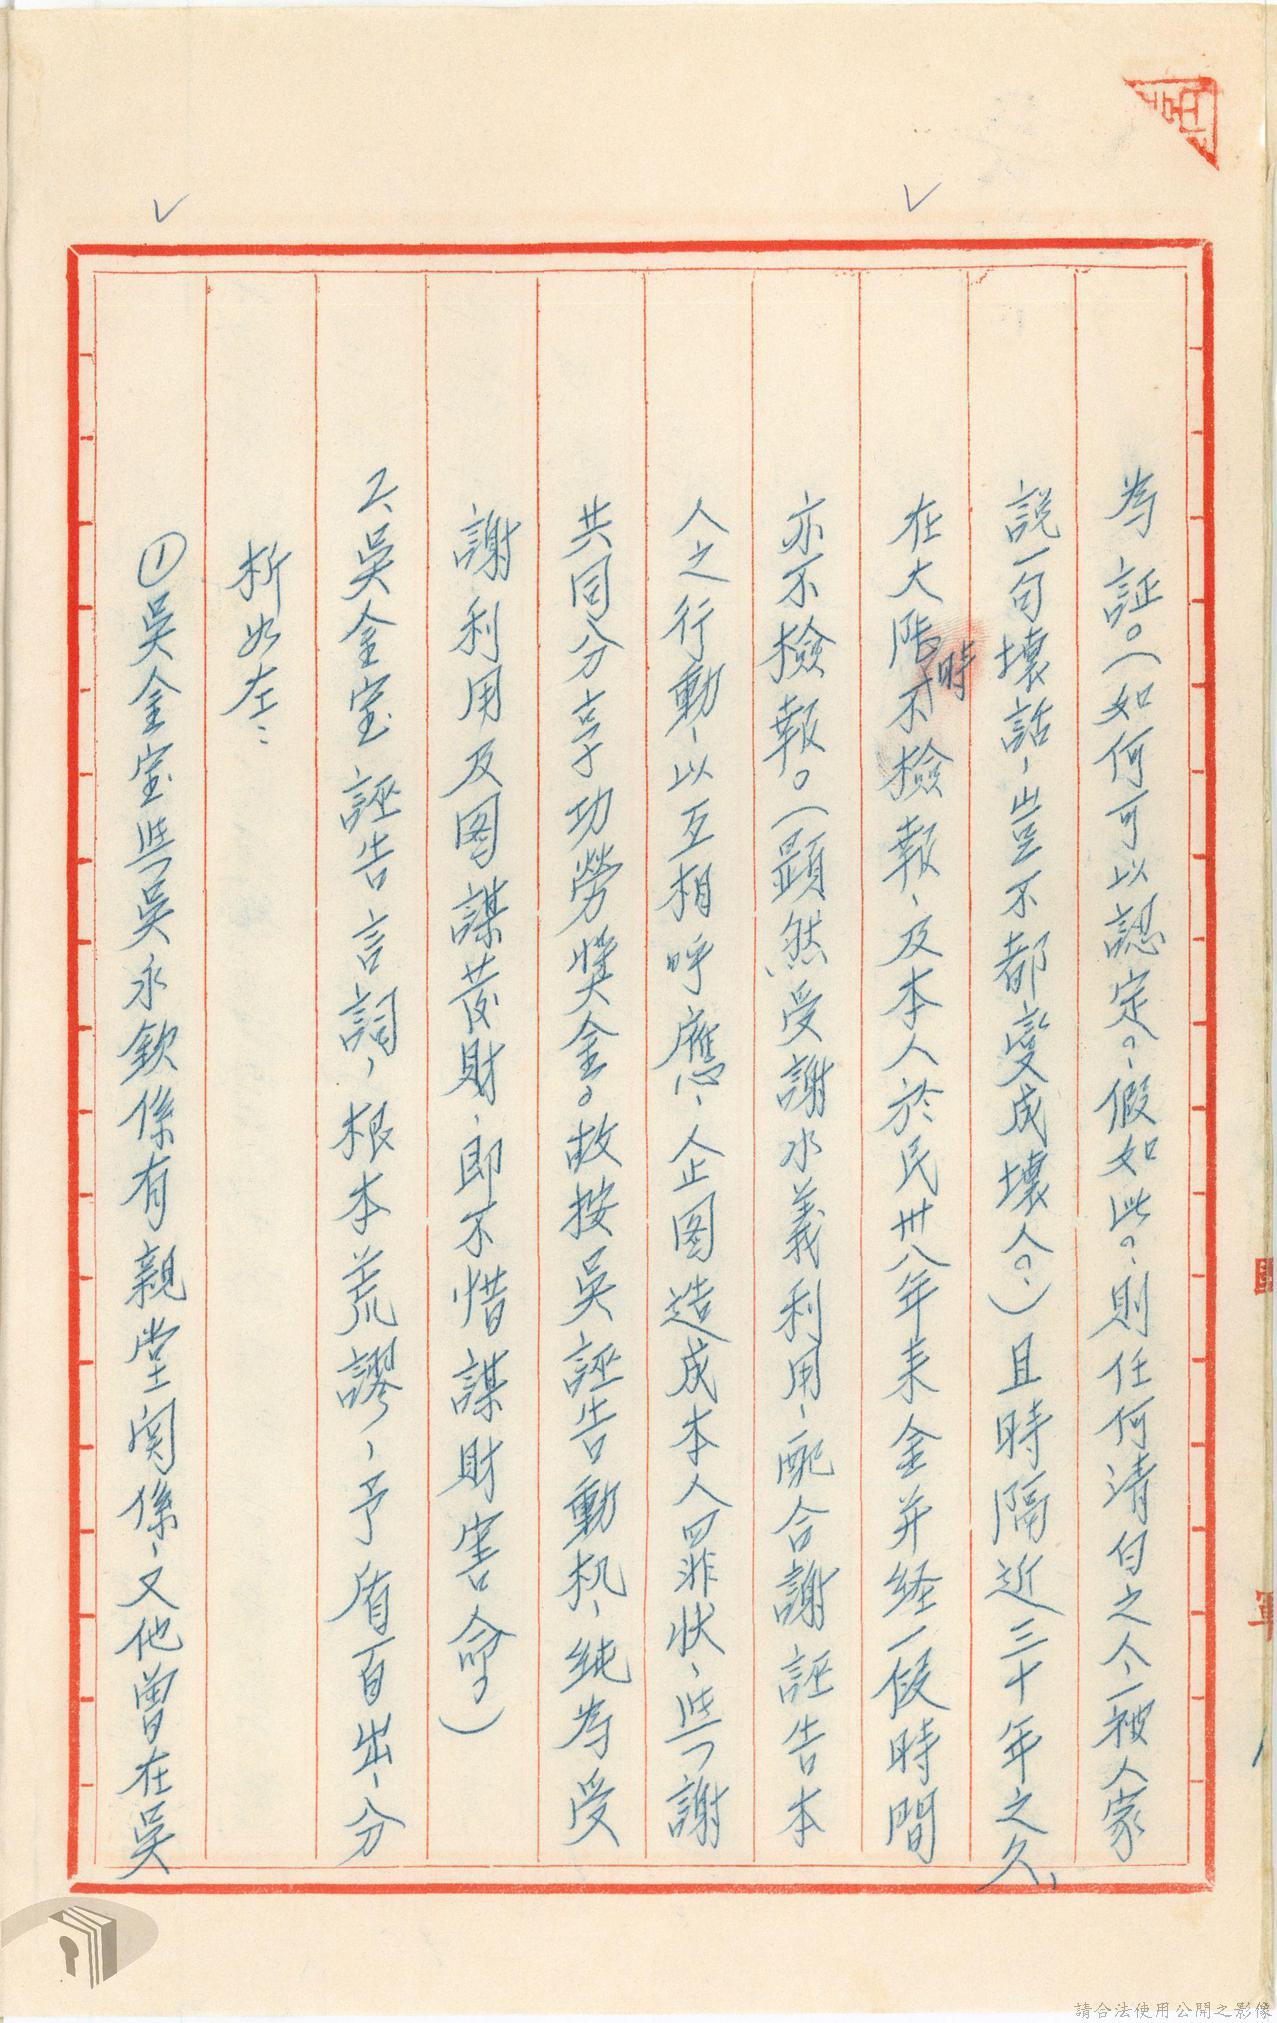 為証。(如何可以認定。、假如此。、則任何清白之人、一被人家
說一句壞話、豈不都變成壞人。、)且時隔近三十年之久、
在大陸時不檢報、及本人於民卅八年来金并経一段時間
亦不檢報。(顯然受謝水義利用、配合謝誣告本
人之行動、以互相呼應、企图造成本人罪狀、與謝
共同分享功勞獎金。故按吳誣告動机、純為受
謝利用及图謀發財、即不惜謀財害命。)
2、吳金宝誣告言詞、根本荒謬、矛盾百出、分
析如左：
①吳金宝與吳永欽係有親堂関係、又他曾在吳
請合法使用公開之影像